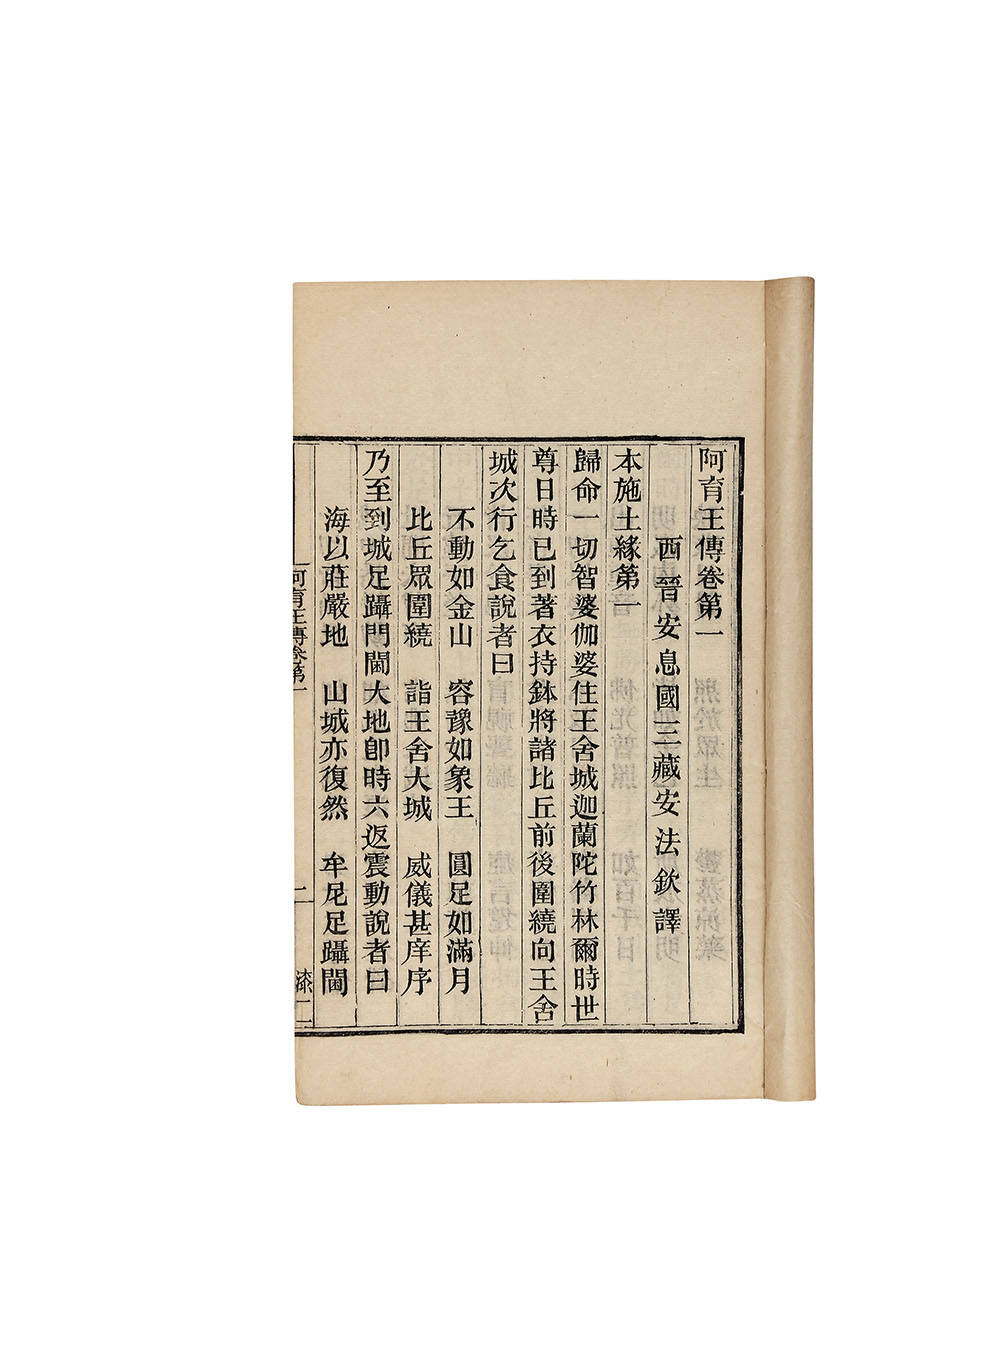 阿育王傳卷第一
西晉安息國三藏安法欽譯
本施土緣第一
歸命一切智婆伽婆住王舍城迦蘭陀竹林爾時世
尊日時已到著衣持鉢將諸比丘前後圍繞向王舍
城次行乞食說者曰
不動如金山　容豫如象王　圓足如滿月
比丘眾圍繞　詣王舍大城　威儀甚庠序
乃至到城足躡門閫大地卽時六返震動說者曰
海以莊嚴地　山城亦復然　牟尼足躡閫
阿育王傳卷第一　二　漆二